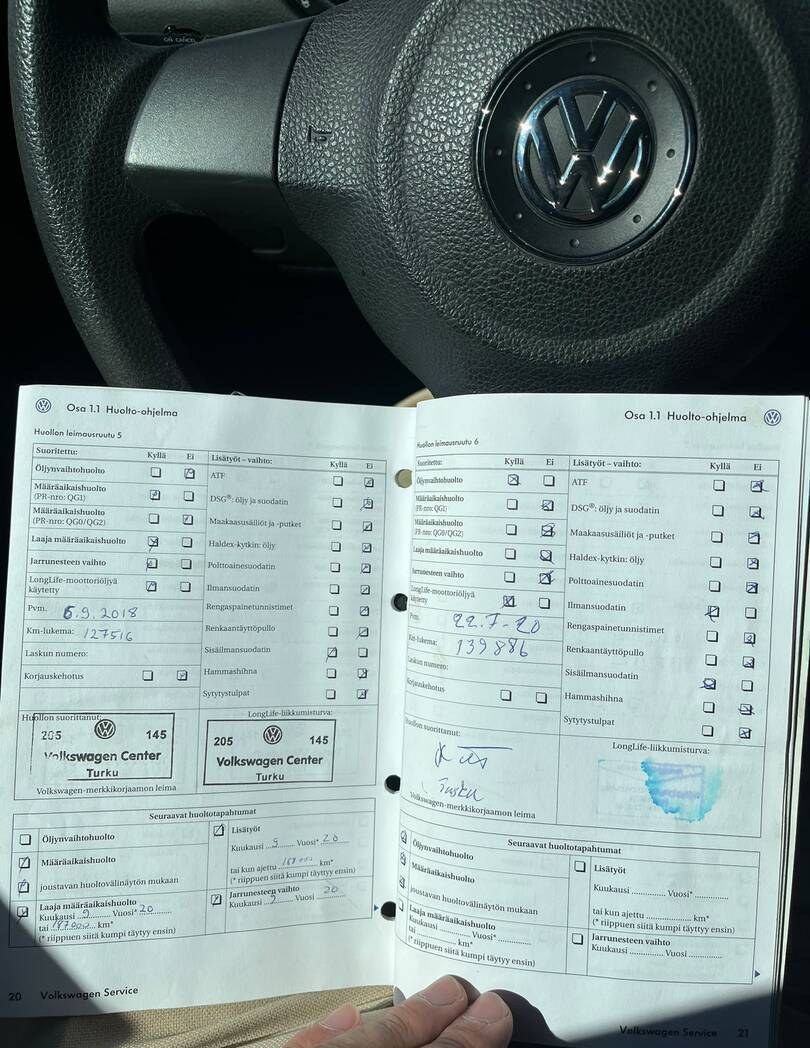 Osa 1.1 Huolto-ohjelma
Huollon leimausruutu 5
Suoritettu: Kyllä Ei
Öljynvaihtohuolto
Määräaikaishuolto
(PR-nro: QG1)
Määräaikaishuolto
(PR-nro: QG0/QG2)
Laaja määräaikaishuolto
Jarrunesteen vaihto
LongLife-moottoriöljyä
käytetty
Pvm. 6.9.2018
Km-lukema: 127516
Laskun numero:
Korjauskehotus
Lisätyöt – vaihto: Kyllä Ei
ATF
DSG®: öljy ja suodatin
Maakaasusäiliöt ja -putket
Haldex-kytkin: öljy
Polttoainesuodatin
Ilmansuodatin
Rengaspainetunnistimet
Renkaantäyttöpullo
Sisäilmansuodatin
Hammashihna
Sytytystulpat
Huollon suorittanut:
205 145
Volkswagen Center
Turku
Volkswagen-merkkikorjaamon leima
LongLife-liikkumisturva:
205 145
Volkswagen Center
Turku
Seuraavat huoltotapahtumat
Öljynvaihtohuolto
Määräaikaishuolto
joustavan huoltovälinäytön mukaan
Laaja määräaikaishuolto
Kuukausi 9 Vuosi* 20
tai km*
(* riippuen siitä kumpi täytyy ensin)
Lisätyöt
Kuukausi 9 Vuosi* 20
tai kun ajettu km*
(* riippuen siitä kumpi täytyy ensin)
Jarrunesteen vaihto
Kuukausi 9 Vuosi 20
20 Volkswagen Service
Osa 1.1 Huolto-ohjelma
Huollon leimausruutu 6
Suoritettu: Kyllä Ei
Öljynvaihtohuolto
Määräaikaishuolto
(PR-nro: QG1)
Määräaikaishuolto
(PR-nro: QG0/QG2)
Laaja määräaikaishuolto
Jarrunesteen vaihto
LongLife-moottoriöljyä
käytetty
Pvm. 22.7-20
Km-lukema: 139886
Laskun numero:
Korjauskehotus
Lisätyöt – vaihto: Kyllä Ei
ATF
DSG®: öljy ja suodatin
Maakaasusäiliöt ja -putket
Haldex-kytkin: öljy
Polttoainesuodatin
Ilmansuodatin
Rengaspainetunnistimet
Renkaantäyttöpullo
Sisäilmansuodatin
Hammashihna
Sytytystulpat
Huollon suorittanut:
Turku
Volkswagen-merkkikorjaamon leima
LongLife-liikkumisturva:
Seuraavat huoltotapahtumat
Öljynvaihtohuolto
Määräaikaishuolto
joustavan huoltovälinäytön mukaan
Laaja määräaikaishuolto
Kuukausi Vuosi*
tai km*
(* riippuen siitä kumpi täytyy ensin)
Lisätyöt
Kuukausi Vuosi*
tai kun ajettu km*
(* riippuen siitä kumpi täytyy ensin)
Jarrunesteen vaihto
Kuukausi Vuosi
Volkswagen Service 21